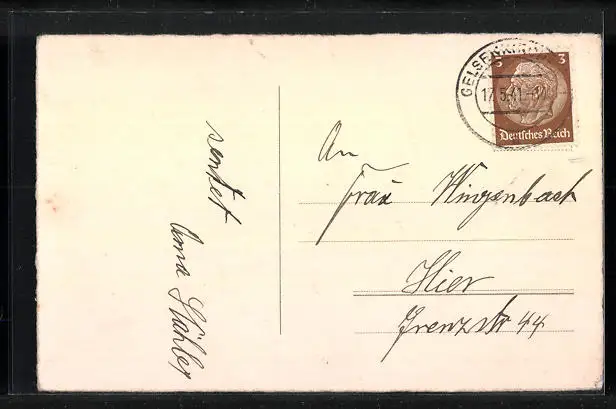 GELSENKIRCHEN
17.5.41
3 3
Deutsches Reich
An
Frau Wingenbach
Hier
Grenzstr 44
sendet
Anna Stähler